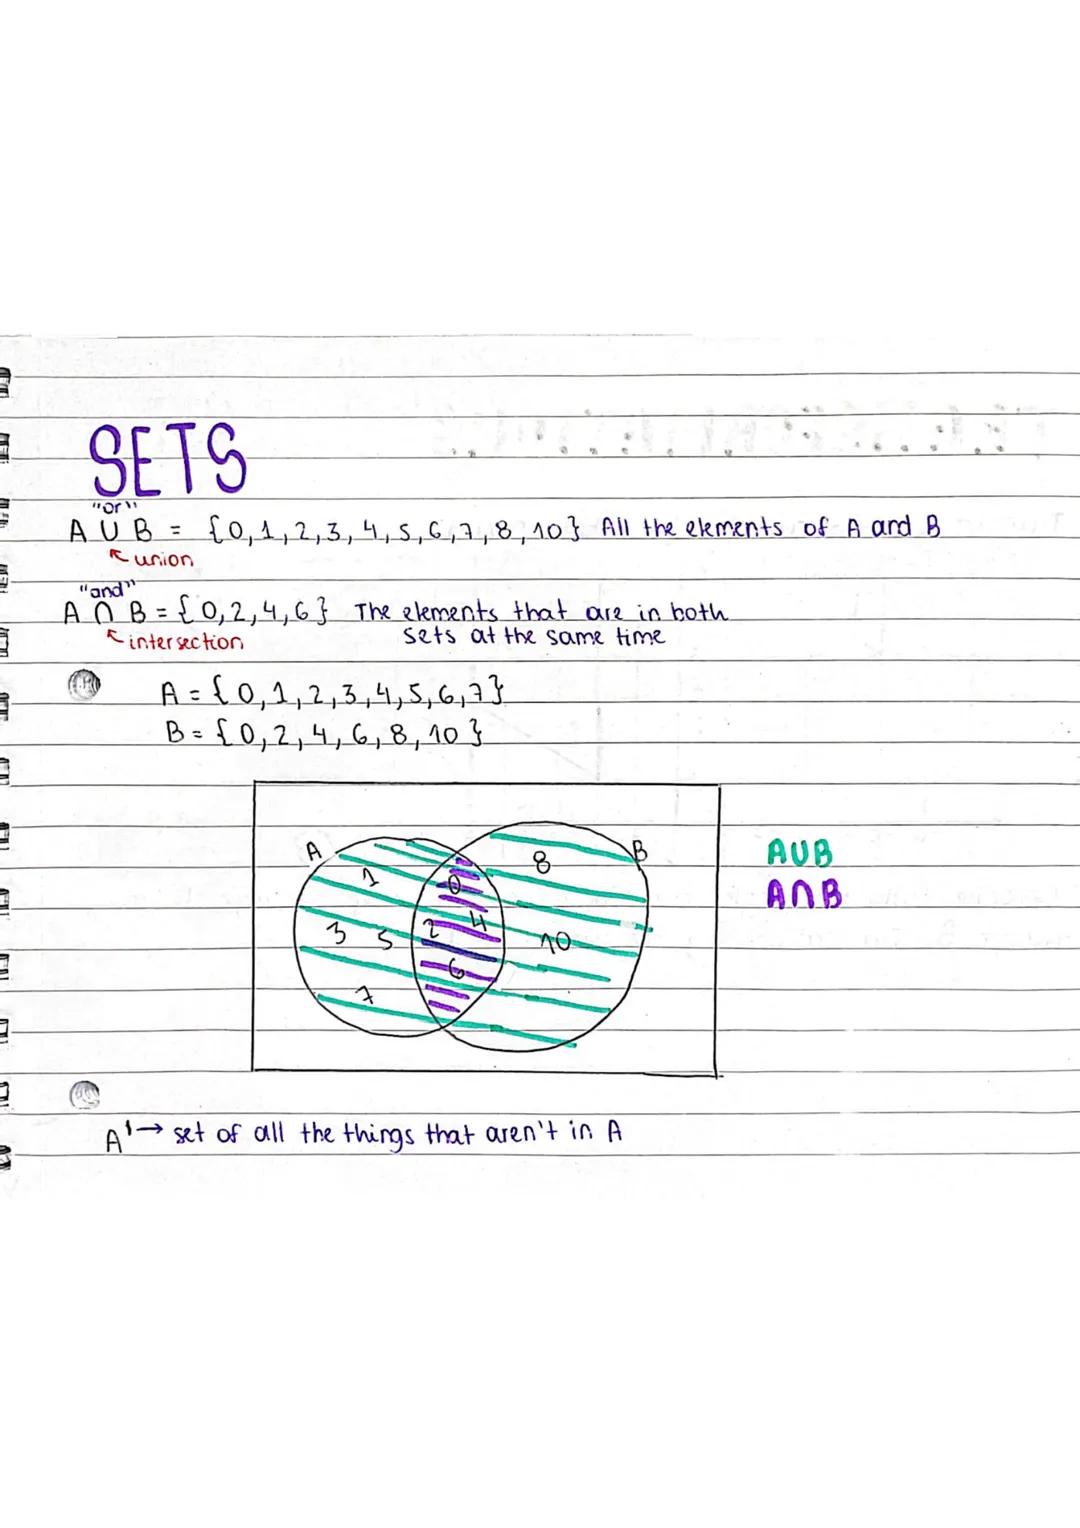 SETS
"or"
A U B = {0,1,2,3,4,5,6,7,8,10} All the elements of A and B
union
"and"
A ∩ B = {0,2,4,6} The elements that are in both
sets at the same time
intersection
A = {0,1,2,3,4,5,6,7}
B = {0,2,4,6,8,10}
A B
8
1 0
3 5 2 4 10
6
7
AUB
A∩B
A' → set of all the things that aren't in A